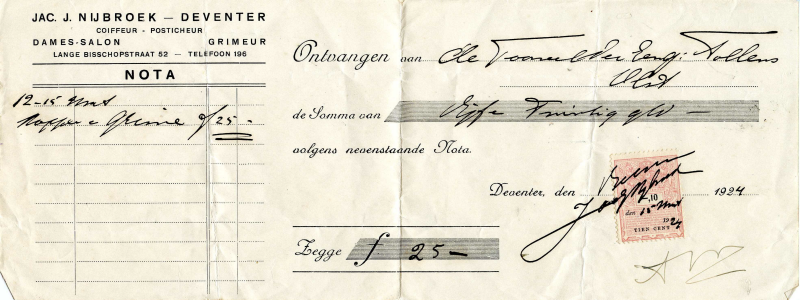 JAC. J. NIJBROEK — DEVENTER
COIFFEUR - POSTICHEUR
DAMES-SALON GRIMEUR
LANGE BISSCHOPSTRAAT 52 — TELEFOON 196
NOTA
12-15 Mrt
Kapper en Grime f 25 -
Ontvangen van de Tooneelvereeng: Tollens
Olst
de Somma van Vijf en Twintig gld —
volgens nevenstaande Nota.
Deventer, den 1924
10
den 15 Mrt
1924
TIEN CENT
Zegge f 25 —